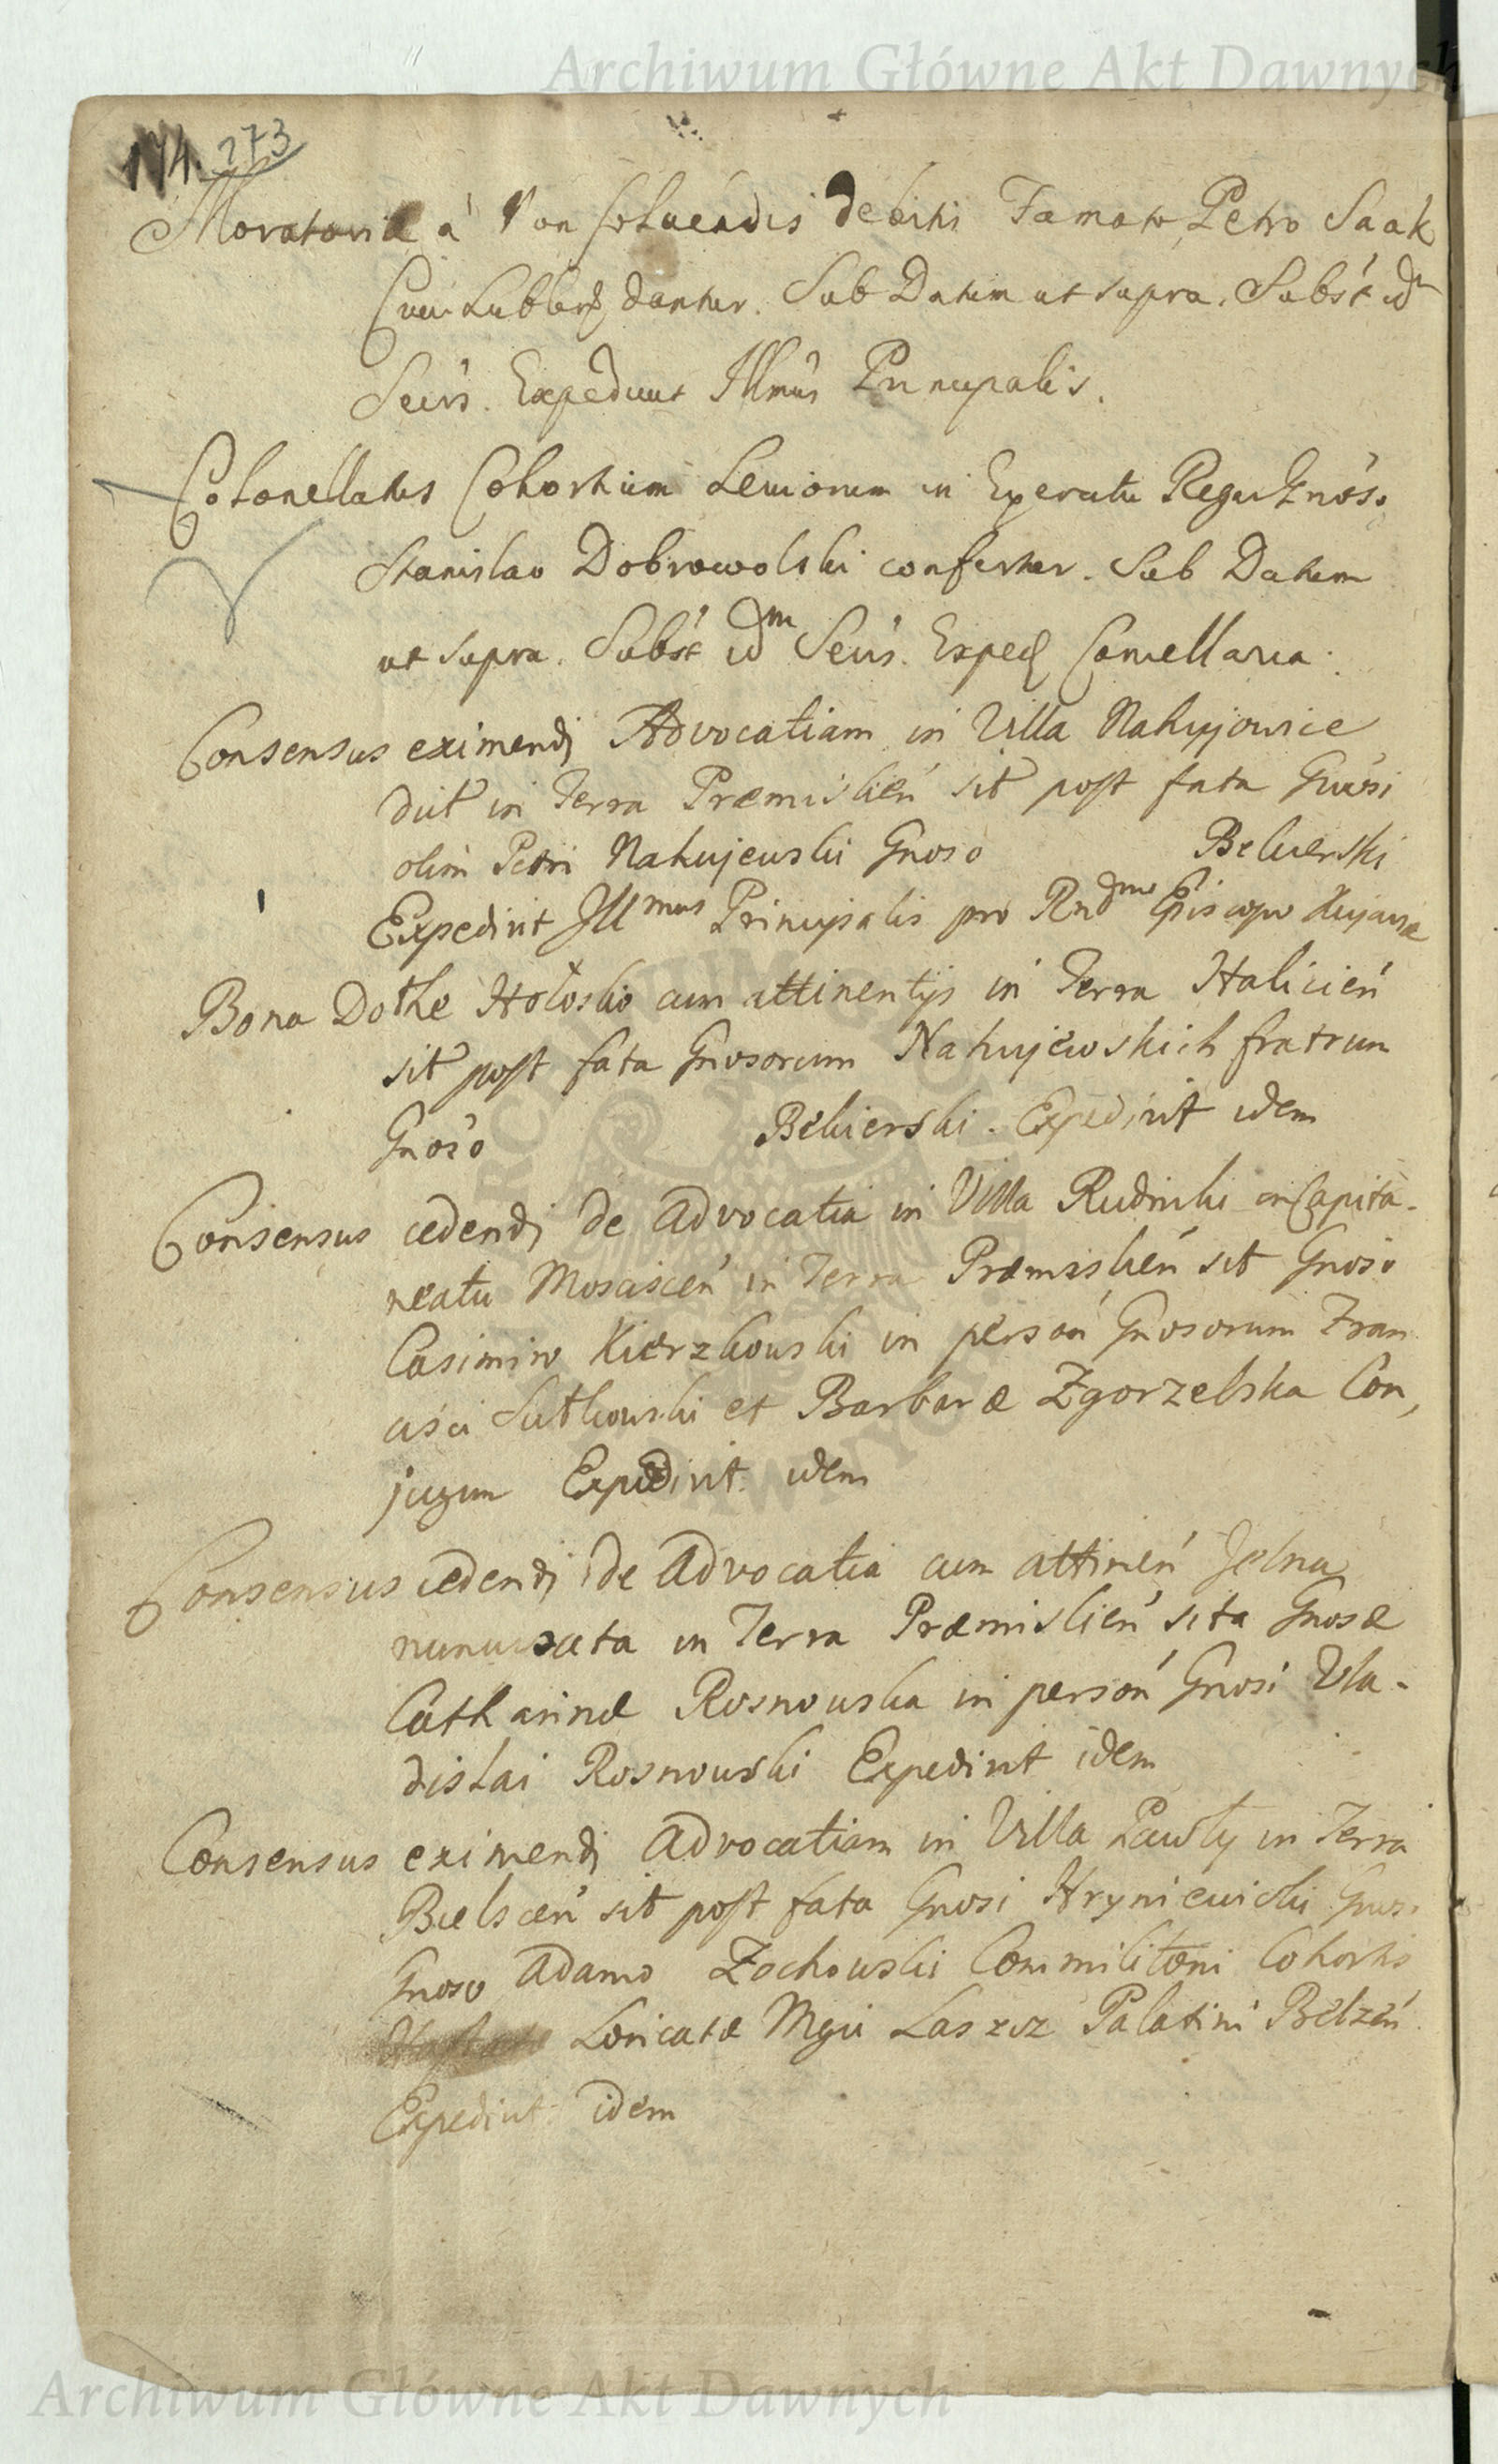 Archiwum Główne Akt Dawnych
174. 273
Moratoriae à Non solvendis debitis Famato Petro Saak
Civi dantur. Sub Datum ut supra. Subst idm
Seris. Expediunt Illmus Principalis.
Colonellatus Cohortium Leviorum in Exercitu Regni Gnoso
Stanislao Dobrowolski confertur. Sub Datum
ut supra. Subst idm Seris. Exped Cancellaria.
Consensus eximendi Advocatiam in Villa Nahujowice
dict in Terra Præmislień sit post fata Gnosi
olim Petri Nahujewski Gnoso Belwerski
Expedivit Illmus Principalis pro Rndmo Episcopo Kujaviæ
Bona Dołhe Hołosko cum attinentÿs in Terra Halicień
sit post fata Gnosorum Nahujewskich fratrum
Gnoso Bekierski. Expedivit idem
Consensus cedendi de Advocatia in Villa Rudniki in Capita-
neatu Mosciscen in Terra Præmislień sit Gnoso
Casimiro Kierzkowski in person Gnosorum Fran
cisci Sutkowski et Barbaræ Zgorzelska Con,
jugum Expedivit idem
Consensus cedendi de Advocatia cum attinen Jelna
nuncupata in Terra Præmislień sita Gnosæ
Catharinæ Rosnowska in person Gnosi Vla-
dislai Rosnowski Expedivit idem
Consensus eximendi Advocatiam in Villa Pawły in Terra
Bielscen sit post fata Gnosi Hryniewicki Gnos.
Gnoso Adamo Zochowski Commilitoni Cohortis
Hastatæ Loricatæ Mgci Laszcz Palatini Belzen
Expedivit idem
Archiwum Główne Akt Dawnych